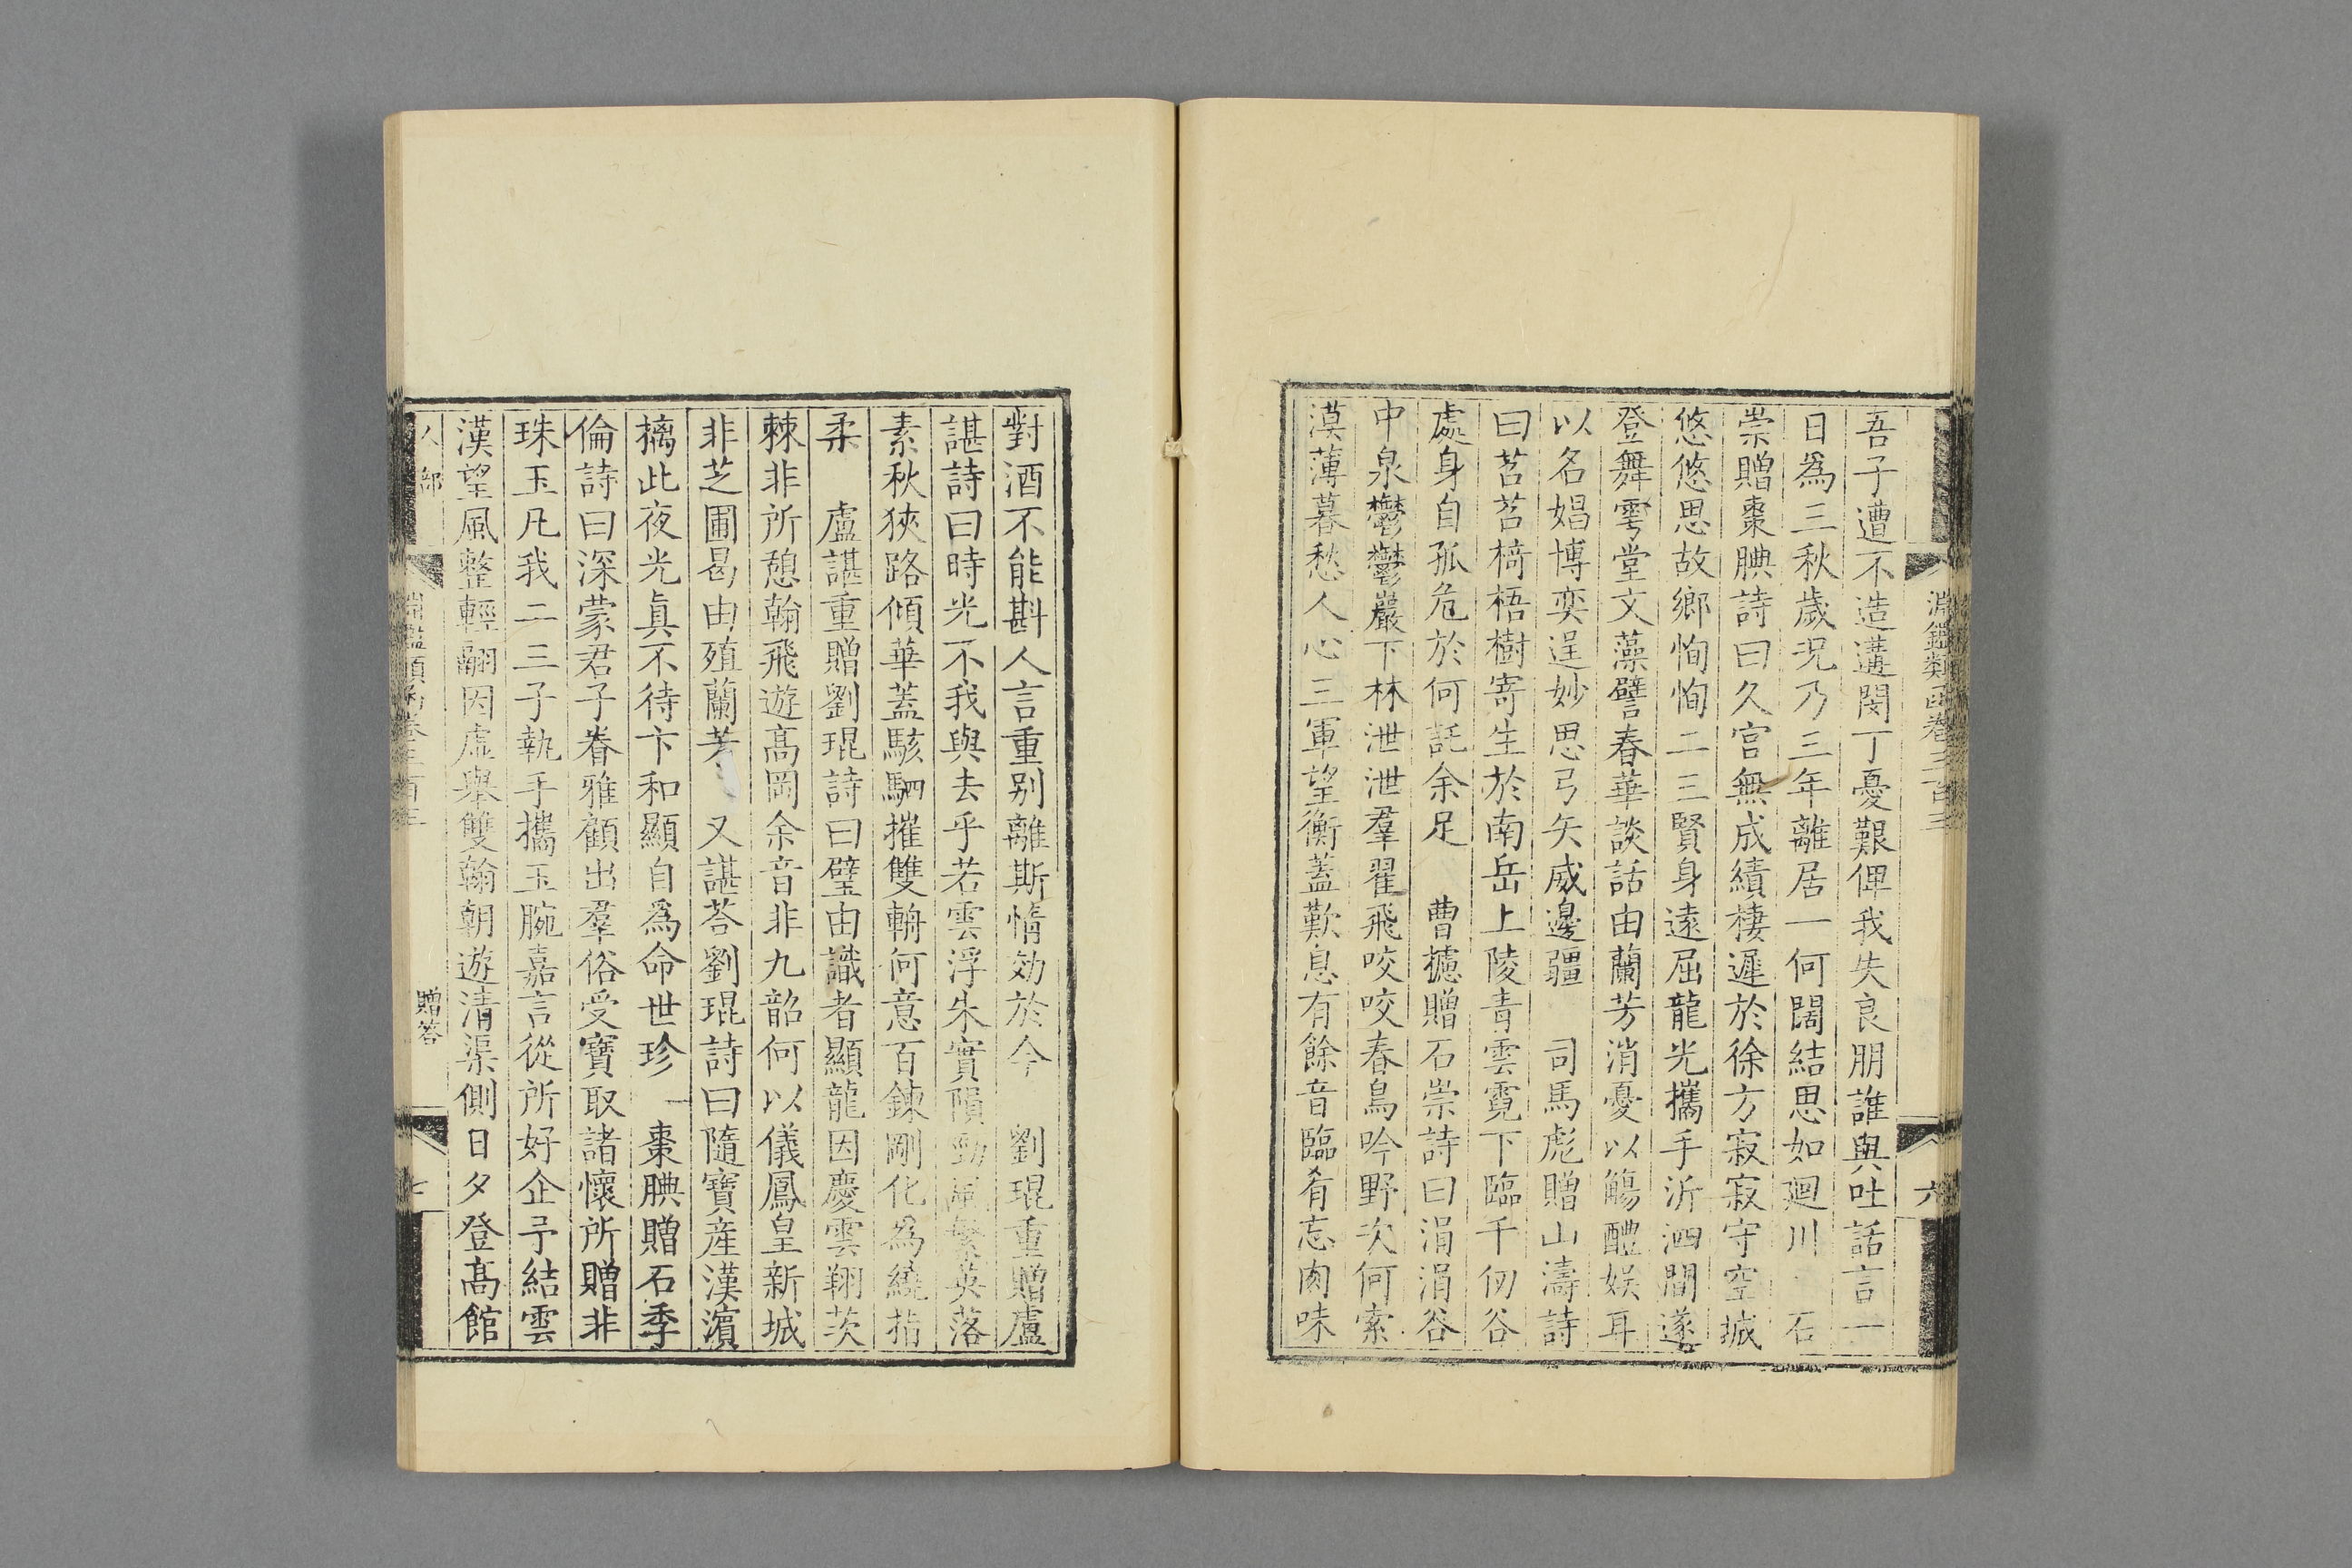 淵鑑類函卷三百三
六
吾子遭不造遘閔丁憂艱俾我失良朋誰與吐話言一
日爲三秋歲況乃三年離居一何闊結思如廻川　石
崇贈棗腆詩曰久官無成績棲遲於徐方寂寂守空城
悠悠思故鄉恂恂二三賢身遠屈龍光攜手沂泗間遂
登舞雩堂文藻譬春華談話由蘭芳消憂以觴醴娛耳
以名娼博奕逞妙思弓矢威邊疆　司馬彪贈山濤詩
曰苕苕椅梧樹寄生於南岳上陵青雲霓下臨千仞谷
處身自孤危於何託余足　曹攄贈石崇詩曰涓涓谷
中泉鬱鬱巖下林泄泄羣翟飛咬咬春鳥吟野次何索
漠薄暮愁人心三軍望衡蓋歎息有餘音臨肴忘肉味
對酒不能斟人言重别離斯情効於今　劉琨重贈盧
諶詩曰時光不我與去乎若雲浮朱實隕勁風繁英落
素秋狹路傾華蓋駭駟摧雙輈何意百鍊剛化為繞指
柔　盧諶重贈劉琨詩曰璧由識者顯龍因慶雲翔茨
棘非所憩翰飛遊高岡余音非九韶何以儀鳳皇新城
非芝圃曷由殖蘭芳　又諶荅劉琨詩曰隨寶産漢濱
摛此夜光眞不待卞和顯自爲命世珍　棗腆贈石季
倫詩曰深蒙君子眷雅顧出羣俗受寶取諸懷所贈非
珠玉凡我二三子執手攜玉腕嘉言從所好企予結雲
漢望風整輕翮因虛舉雙翰朝遊清渠側日夕登高館
人部
淵鑑類函卷三百三
贈答
七